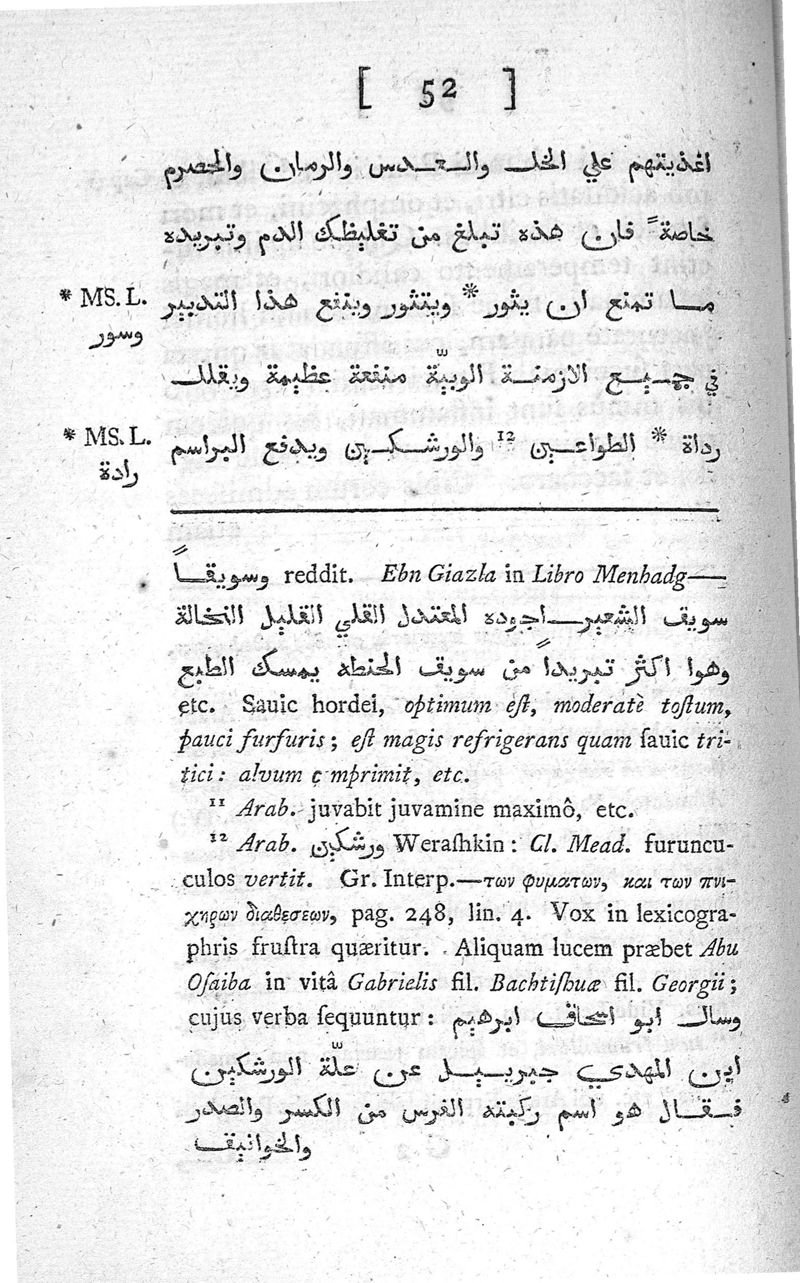 [ 52 ]
اغذيتهم علي الخل والعدس والرمان والحصرم
خاصةً فان هذه تبلغ من تغليظك الدم وتبريده
* MS. L.
ما تمنع ان يثور * ويتثور وينفع هذا التدبير
وسور
في جميع الازمنة الوبيّة منفعة عظيمة ويقلل
* MS. L.
رداة * الطواعين 12 والورشكين ويدفع البراسم
رادة
وسويقاً reddit. Ebn Giazla in Libro Menhadg—
سويف الشعير—اجوده المعتدل القلي القليل النخالة
وهوا اكثر تبريداً من سويف الحنطه يمسك الطبع
etc. Sauic hordei, optimum eſt, moderatè toſtum,
pauci furfuris; eſt magis refrigerans quam ſauic tri-
tici: alvum c mprimit, etc.
11 Arab. juvabit juvamine maximô, etc.
12 Arab. ورشكين Weraſhkin: Cl. Mead. furuncu-
culos vertit. Gr. Interp.—των φυματων, και των πνι-
χηρων διαθεσεων, pag. 248, lin. 4. Vox in lexicogra-
phris fruſtra quæritur. Aliquam lucem præbet Abu
Oſaiba in vitâ Gabrielis fil. Bachtiſhuæ fil. Georgii;
cujus verba ſequuntur: وسال ابو اسحاف ابرهيم
ابن المهدي جبرييل عن علّة الورشكين
فقال هو اسم ركبته الفرس من الكسر والصدر
والخوانيف